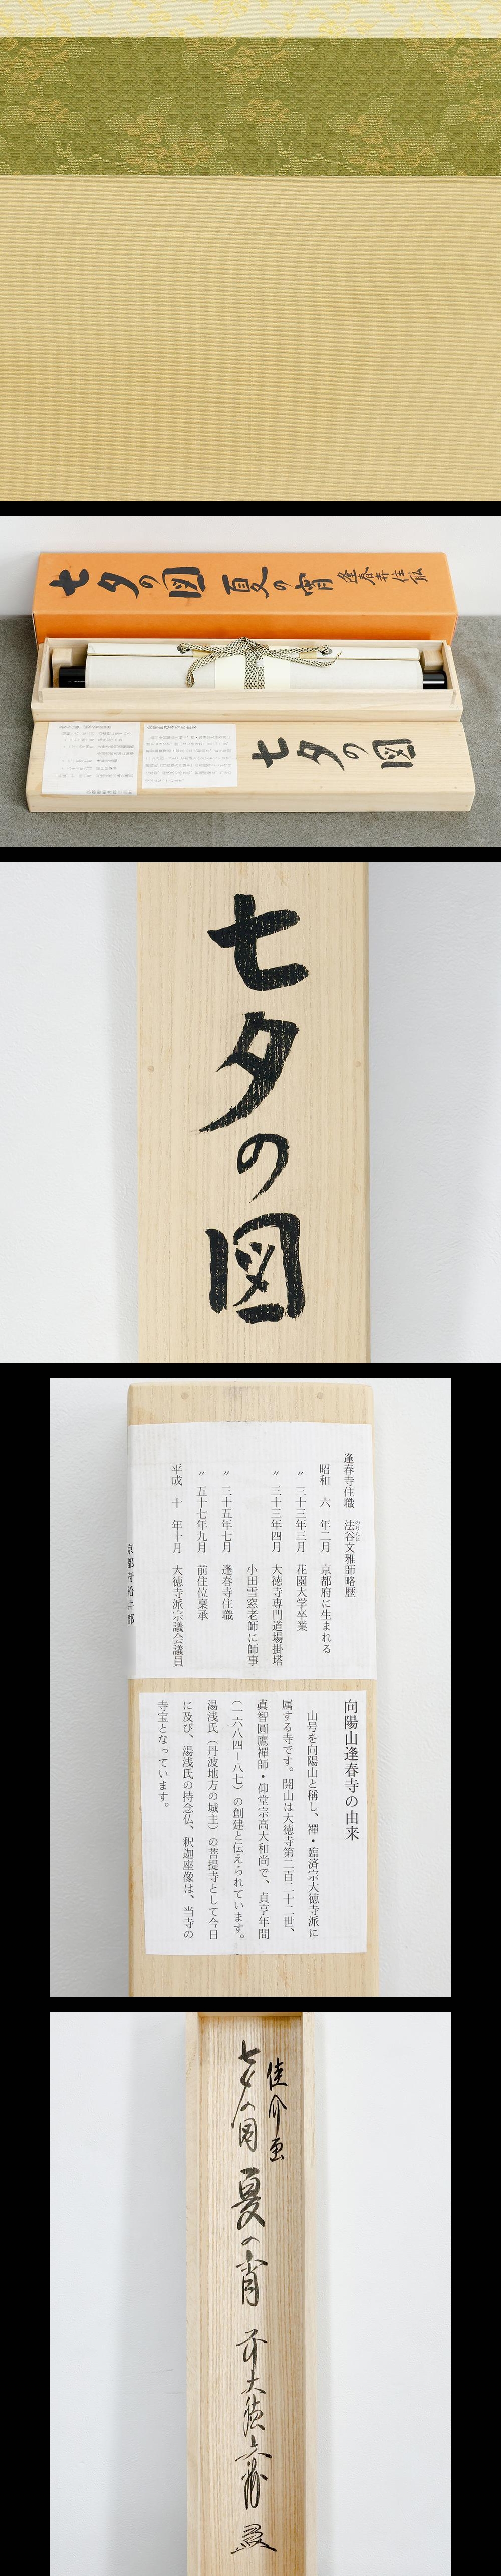 七夕の図 夏の宵
七夕の図
七夕の図
逢春寺住職 法谷文雅師略歴
のりたに
昭和 六 年二月 京都府に生まれる
〃 三十三年三月 花園大学卒業
〃 三十三年四月 大徳寺専門道場掛塔
小田雪窓老師に師事
〃 三十五年七月 逢春寺住職
〃 五十七年九月 前住位稟承
平成 十 年十月 大徳寺派宗議会議員
京都府船井郡
向陽山逢春寺の由来
山号を向陽山と稱し、禪・臨済宗大徳寺派に
属する寺です。開山は大徳寺第二百二十二世、
眞智圓鷹禪師・仰堂宗高大和尚で、貞亨年間
(一六八四―八七)の創建と伝えられています。
湯浅氏(丹波地方の城主)の菩提寺として今日
に及び、湯浅氏の持念仏、釈迦座像は、当寺の
寺宝となっています。
佳介画
七夕の図 夏の宵